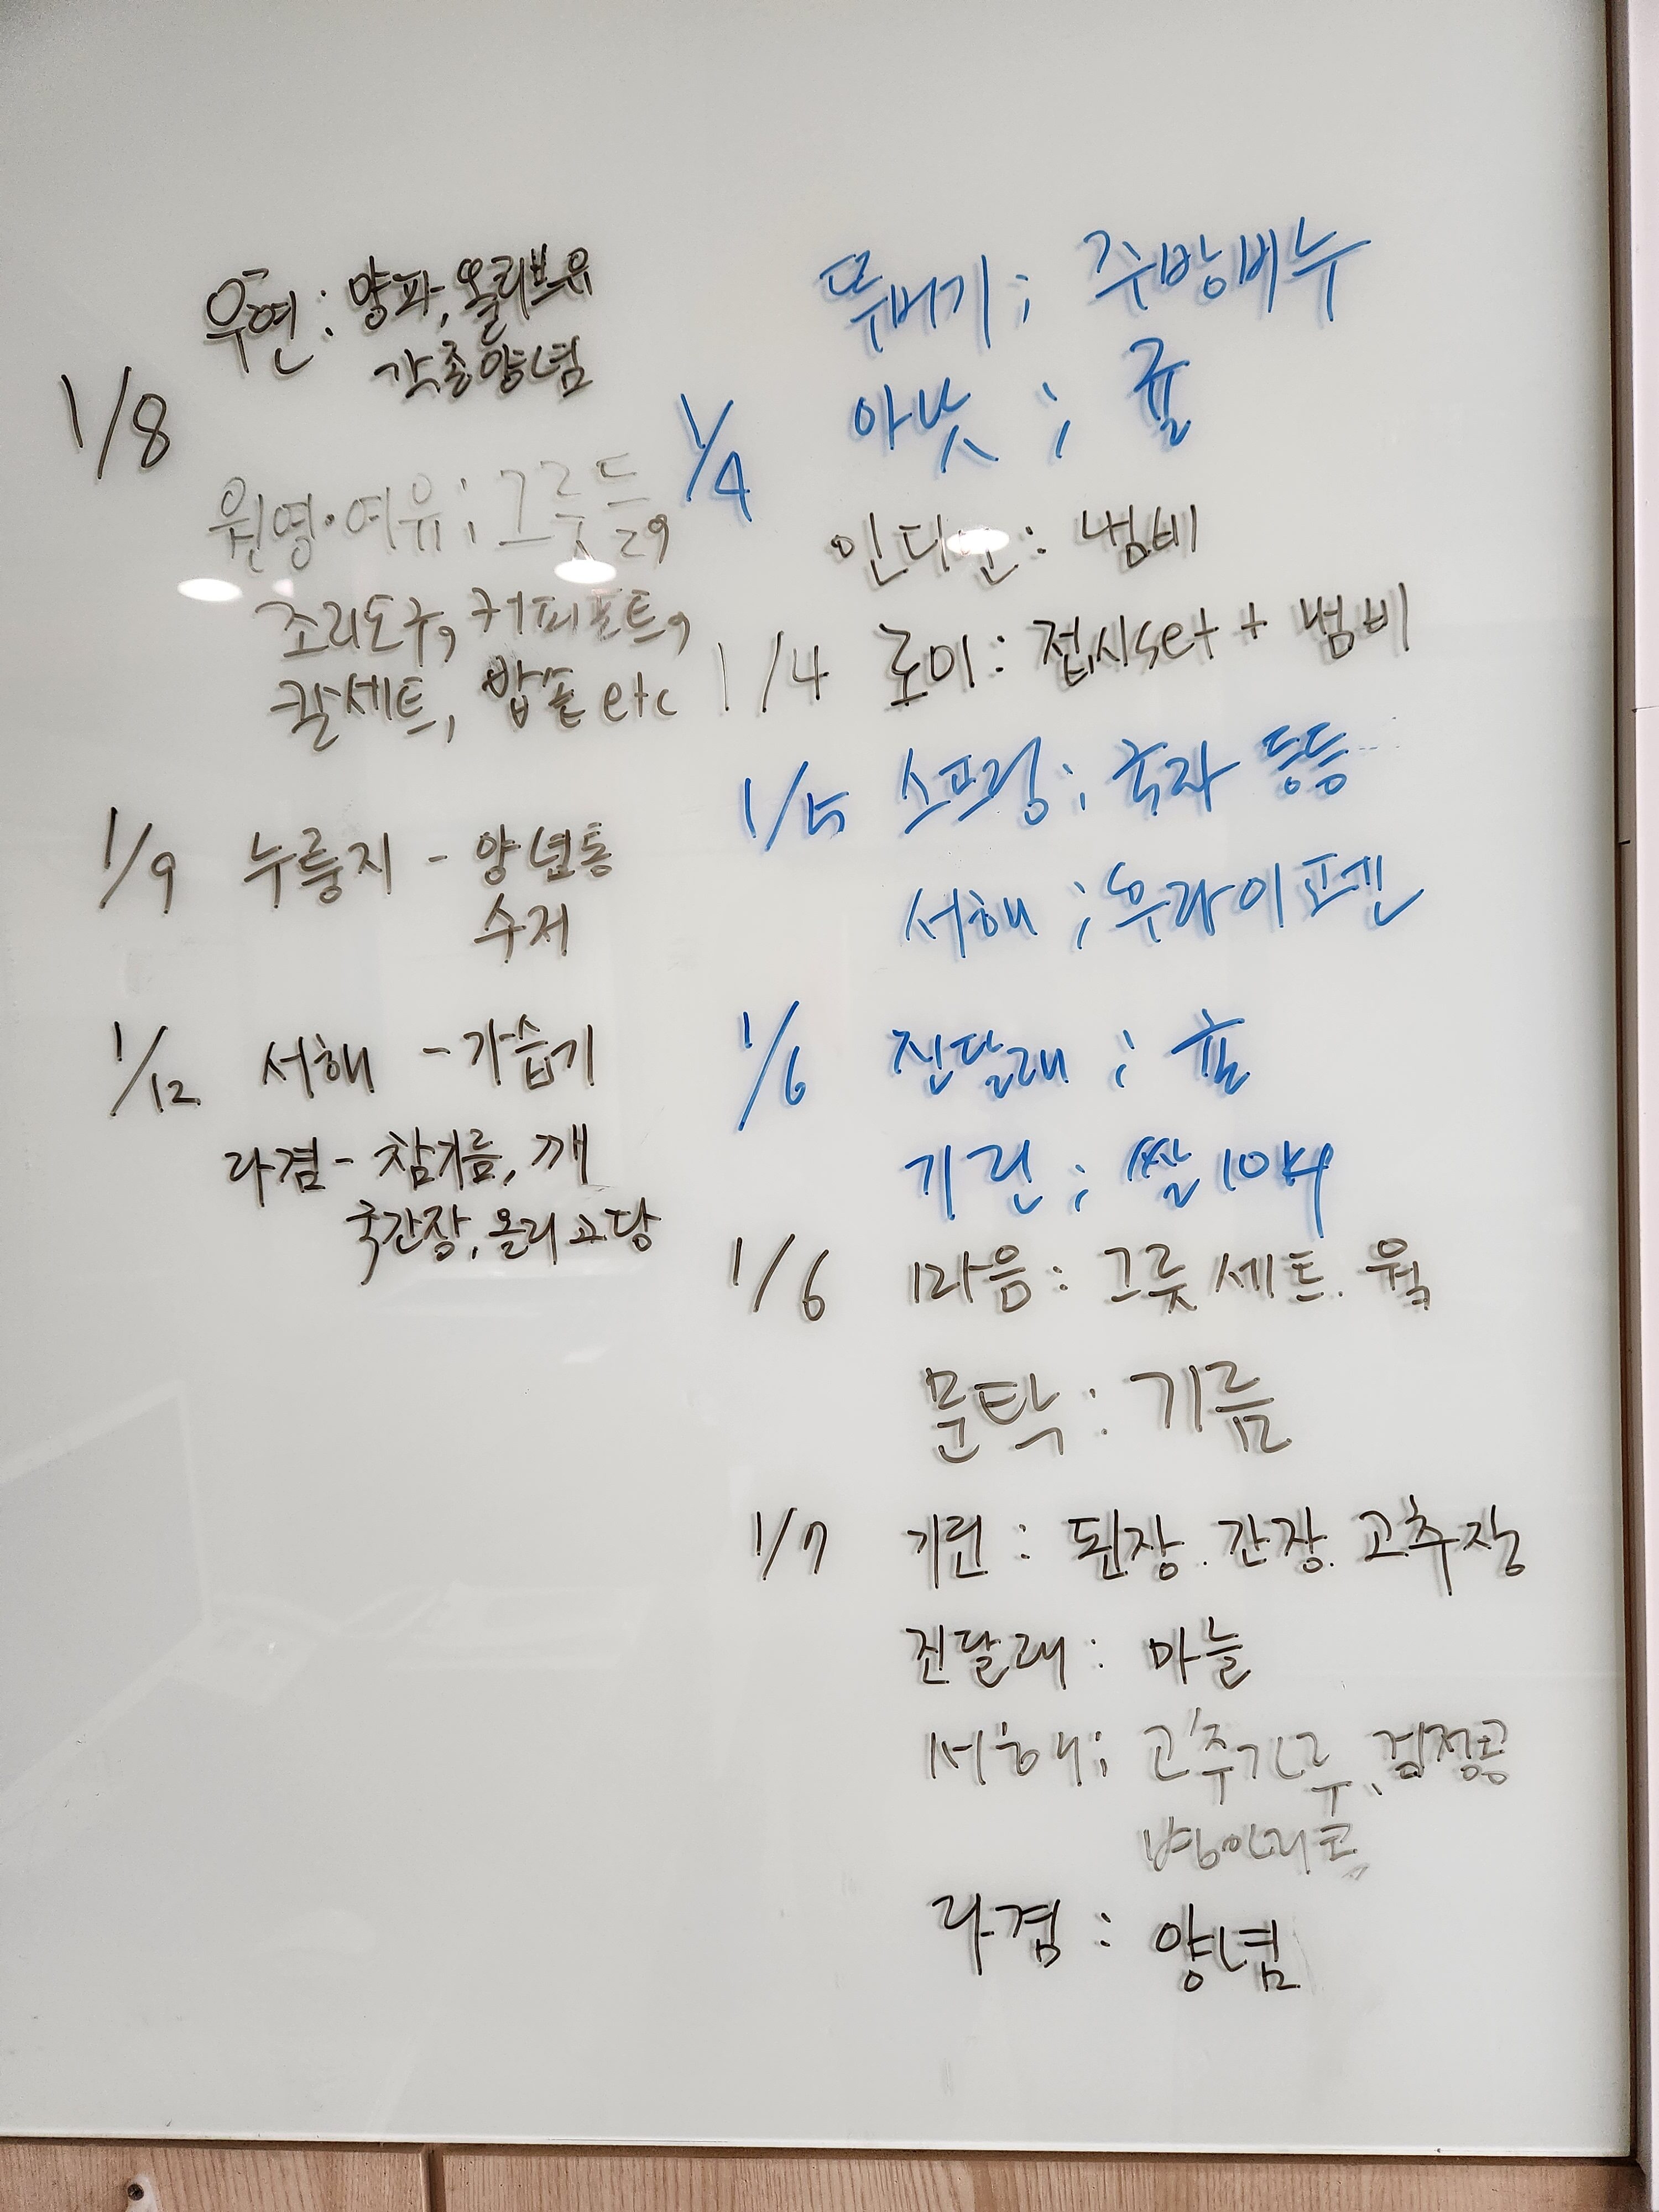 우현: 양파, 올리브유
각종양념
1/8
원영·여유; 그릇들,
조리도구, 커피포트,
칼세트, 밥솥 etc
1/9 누룽지 - 양념통
수저
1/12 서해 - 가습기
라겸 - 참기름, 깨
국간장, 올리고당
뚜버기; 주방비누
1/4 아낫; 귤
인디언: 냄비
1/4 로이: 접시set + 냄비
1/5 스프링; 국자 등등
서해; 후라이팬
1/6 진달래; 귤
기린; 쌀 10
1/6 마음: 그릇세트. 웍
문탁: 기름
1/7 기린: 된장. 간장. 고추장
진달래: 마늘
서해; 고추가루, 검정콩
병아리콩
라겸: 양념